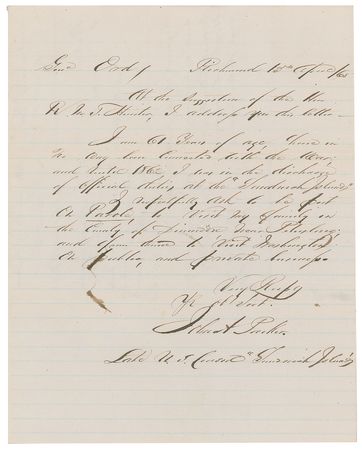 Genl Ord /    Richmond 12th April /65
At the suggestion of the Hon
R M T Hunter, I address you this letter.
I am 61 years of age, have in
no way been connected with the War,
and until 1862 I was in the discharge
of official duties at the "Sandwich Islands"
I respectfully ask to be put
on Parole, to visit my family in
the County of
and from there to visit Washington
on public, and private business.
Very Respy
Yr ob Svt.
John A Parker
Late U S Consul "Sandwich Islands"